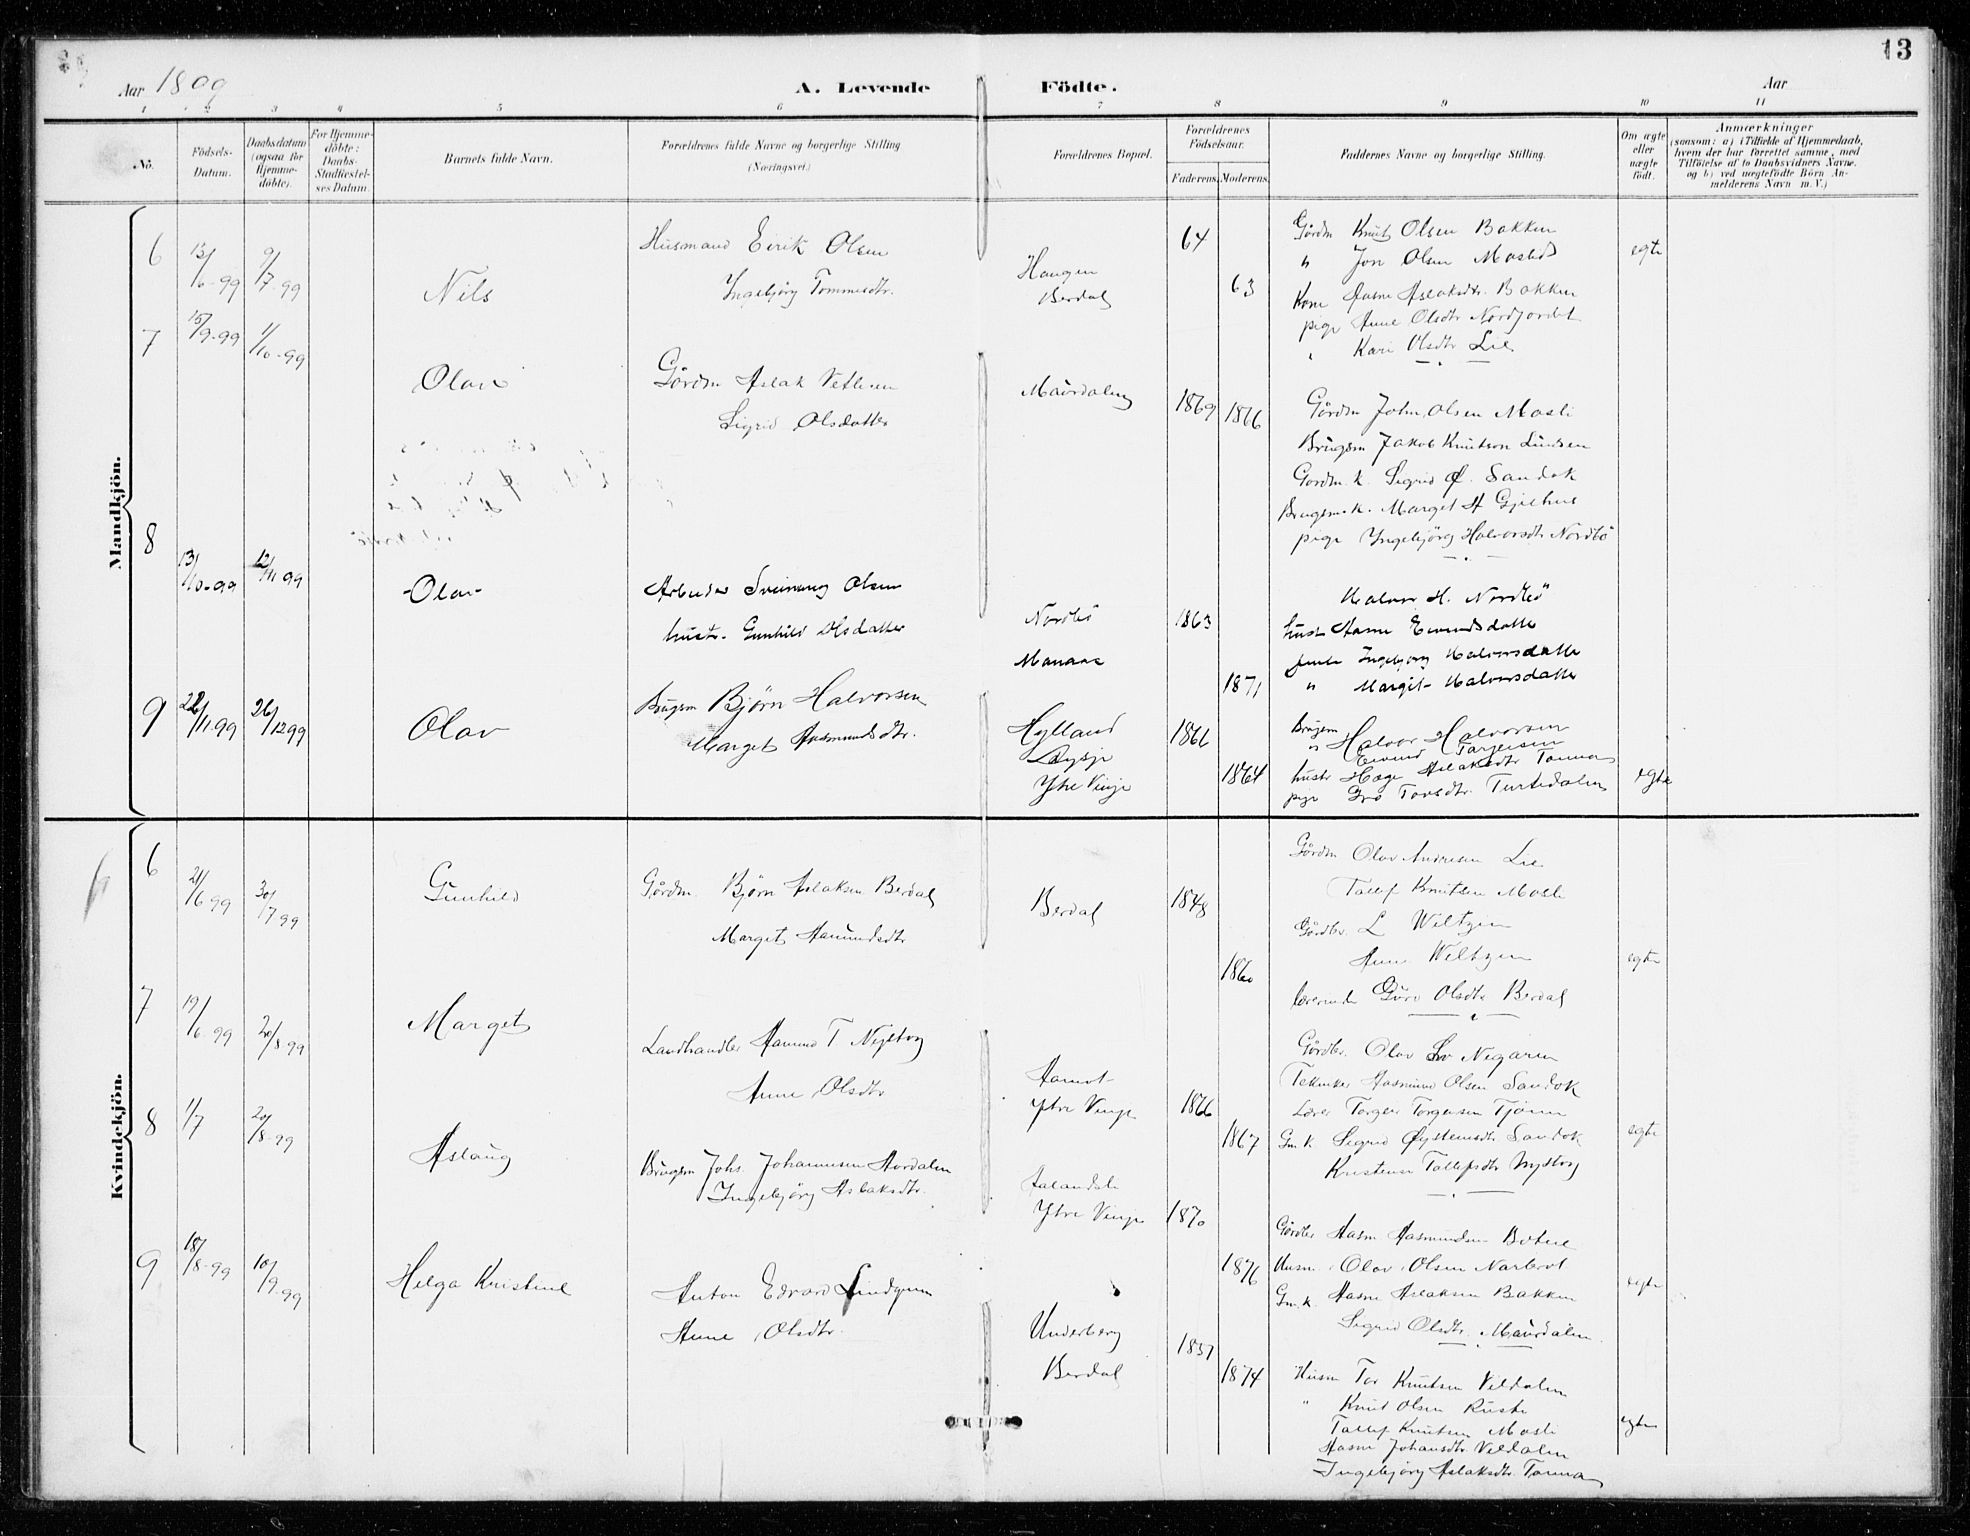 13
Aar 1899
A. Levende Födte.
Aar
1 2 3 4 5 6 7 8 9 10 11
No.
Födsels-Datum.
Daabsdatum (ogsaa for Hjemme-döbte).
For Hjemme-döbte: Daabs-Stadfæstel-ses Datum.
Barnets fulde Navn.
Forældrenes fulde Navne og borgerlige Stilling (Næringsvei.)
Forældrenes Bopæl.
Forældrenes Födselsaar.
Faderens. Moderens.
Faddernes Navne og borgerlige Stilling.
Om ægte eller uægte födt.
Anmærkninger
(saasom: a) i Tilfælde af Hjemmedaab,
hvem der har forrettet samme, med
Tilföielse af to Daabsvidners Navne.
og b) ved uægtefödte Börn An-
melderens Navn m. V.)
Mandkjön.
6 13/6-99 9/7-99 Nils
Husmand Eirik Olsen
Ingebjörg Tommesdtr.
Haugen
Berdal
64
63
Gårdm Knut Olsen Bakken
" Jon Olsen Mosli
Kone Aasne Aslaksdtr. Bakken
pige Anne Olsdtr Nordjordet
" Kari Olsdtr Lie
egte
7 15/9-99 1/10-99 Olav
Gårdm Aslak Vetlesen
Sigrid Olsdatter
Maurdalen
1869 1866
Gårdm John Olsen Mosli
Brugsm Jakob Knutson Lundsen
Gardm. k. Sigrid Ø. Sandok
Brugsm. k. Marget H Gjelhus
pige Ingebjörg Halvorsdtr Nordbö
8 13/10-99 12/11 99 -Olav-
Arbeider Sveinung Olsen
hustr. Gunhild Olsdatter
Nordbö
Manaae
1863
1871
Halvor H. Nordbö
hust Aasne Eivindsdatter
pike Ingebjorg Halvorsdatter
" Margit Halvorsdatter
9 22/11-99 26/12 99 Olav
Brugsm Björn Halvorsen
Marget Aasmundsdtr.
Hylland
Ytre Vinje
1866
1864
Brugsm Halvor Halvorsen
" Eivind Targeisen
hustr Hæge Aslaksdtr Tonna
pige Gro Tovsdtr.
egte
Kvindekjön.
6 21/6 99 30/7 99 Gunhild
Gårdm. Björn Aslaksen Berdal
Marget Aamundsdtr
Berdal
1848
1860
Gårdm Olav Andresen Lie
Tallef Knutsen Mosli
Gårdbr. L Wiltzin
Anne Wiltzin
lærerinde Guro Olsdtr Berdal
egte
7 19/6-99 20/8-99 Marget
Landhandler Aamund T. Nystog
Anne Olsdtr
Aamot
Ytre Vinje
1866
1867
Gårdbr. Olav Sv Negaren
Tekniker Aasmund Olsen Sandok
Lærer Torgeir Torgeirsen Tjönn
Gm. k. Sigrid Øysteinsdtr Sandok
Kristense Tallefsdtr Nystog
egte
8 1/7 20/8-99 Aslaug
Brugsm Johs. Johannesen Aardalen
Ingebjörg Aslaksdtr.
Ytre Vinje
1870
1876
Gårdbr Aasm Aasmundsen
Husm. Olav Olsen
Gm. k. Aasne Aslaksen Bakken
Sigrid Olsdtr. Maurdalen.
egte
9 18/8-99 10/9-99 Helga Kristine
Anton Edvard Lindgren
Anne Olsdtr.
Underberg
Berdal
1857
1874
Husm Tor Knutsen Veldalen
" Knut Olsen Ruste
Tallef Knutsen Mosli
Aasne Johansdtr. Veldalen
Ingebjörg Aslaksdtr. Tonna
egte